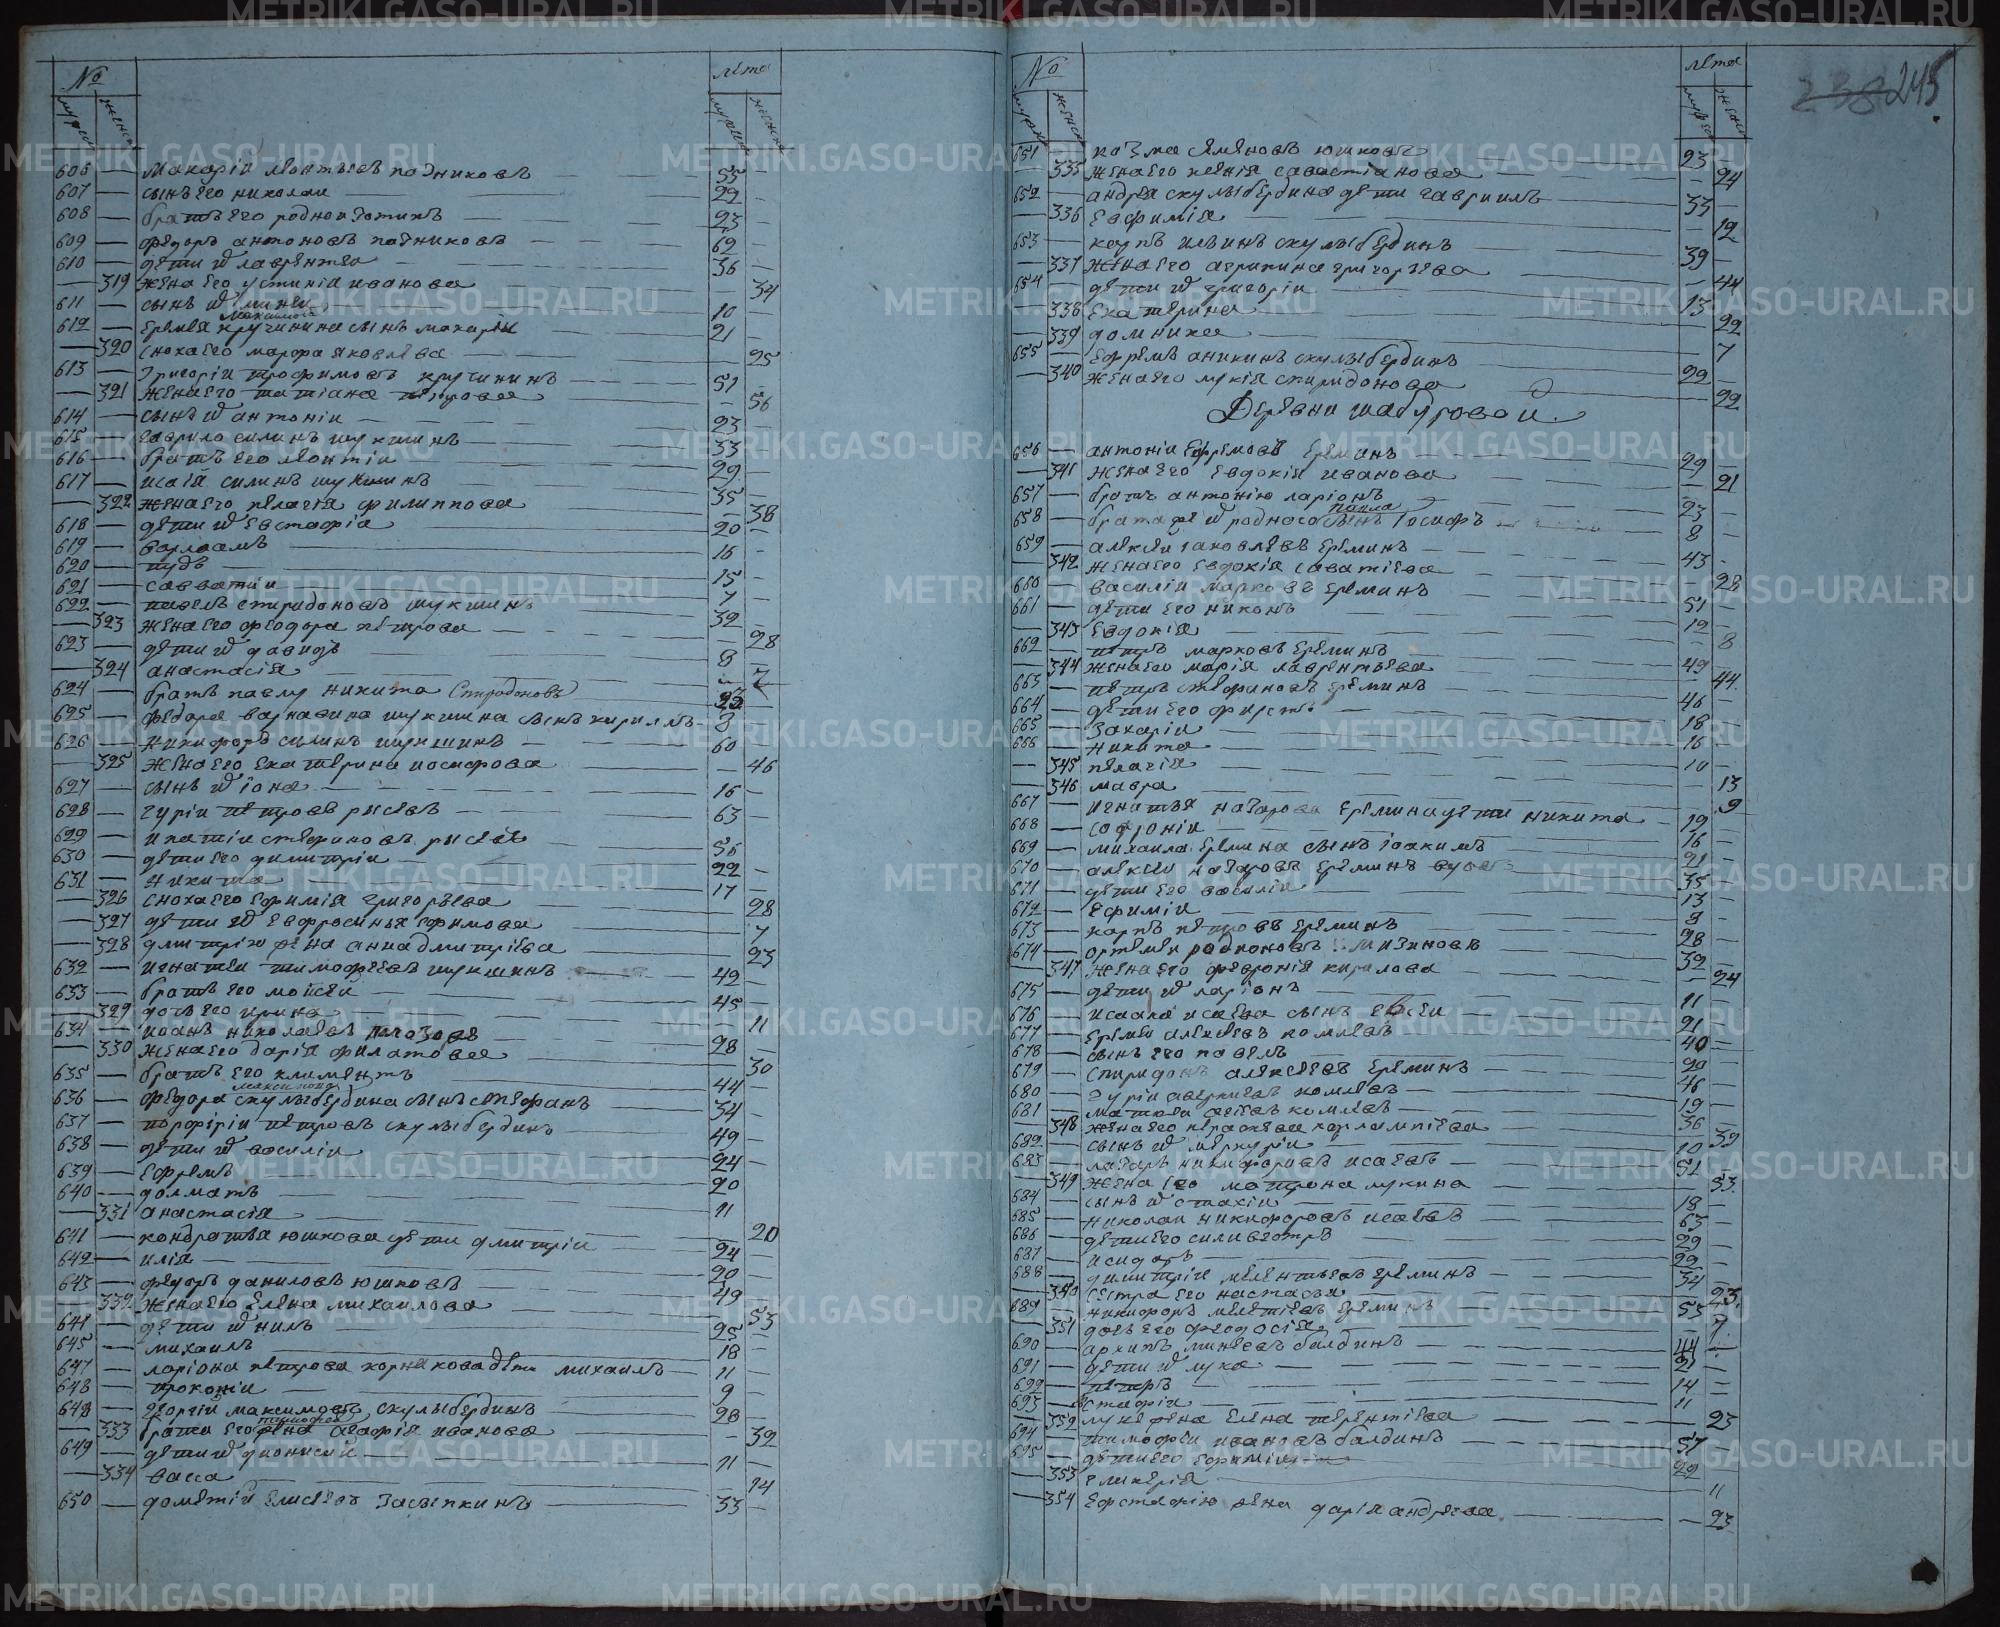 № лѣта
мужеск женск мужеск женск
606 — Макарiи леонтьевъ падчиковъ — 55 —
607 — сынъ его николаи — 22 —
608 — братъ его роднои — 23 —
609 — федоръ антоновъ — 62 —
610 — дети их лаврентеи — 36 —
— 319 жена его устинiа иванова — 34
611 — сынъ их — 10 —
612 — еремея кручинина сынъ макарiи — 21
— 320 сноха его марфа яковлева — 25
613 — Григорiи трофимовъ кручининъ — 51 —
— 321 жена его татiана петрова — 56
614 — сынъ их антонiи — 23
615 — гаврило силинъ шукшинъ — 33 —
616 — братъ его леонтiи — 29 —
617 — исаiя силинъ шукшинъ — 35
— 322 жена его пелагiя филиппова — 38
618 — дети их евстафiа — 20 —
619 — варлаамъ — 16 —
620 — iудъ — 15 —
621 — савватiи — 7 —
622 — павелъ спиридоновъ шукшинъ — 32 —
— 323 жена его феодора петрова — 28
623 — дети их давидъ — 8 —
— 324 анастасiя — 7
624 — братъ павлу никита Спиридоновъ — 23
625 — федора варнавина шукшина сынъ кириллъ — 3 —
626 — никифоръ силинъ шукшинъ — 60 —
— 325 жена его екатерина иосифова — 46
627 — сынъ их iона — 16 —
628 — гурiи петровъ рысевъ — 63 —
629 — ипатiи стефановъ рысевъ — 56
630 — дети его димитрiи — 22 —
631 — никита — 17 —
— 326 сноха его ефимiя григорьева — 28
— 327 дети их евфросинья ефимова — 7
— 328 дмитрiю жена анна дмитрiева — 23
632 — игнатеи тимофеевъ шукшинъ — 42 —
633 — братъ его моисеи — 45 —
— 329 дочь его ирина — 11
634 — иоанъ николаевъ — 28 —
— 330 жена его дарiя филатова — 30
635 — братъ его климентъ — 44 —
636 — федора скулыбердина сынъ стефанъ — 34 —
637 — порфирiи петровъ скулыбердинъ — 49 —
638 — дети их василiи — 24 —
639 — ефремъ — 20
640 — долматъ — 11
— 331 анастасiя — 20
641 — кондратья юшкова дети дмитрiи — 24 —
642 — илiя — 20 —
643 — федоръ даниловъ юшковъ — 49 —
— 332 жена его елена михаилова — 53
644 — дети их нилъ — 25 —
645 — михаилъ — 18 —
647 — ларiона петрова корнякова дети михаилъ — 11 —
648 — прокопiи — 9 —
648 — георгiи максимовъ скулыбердинъ — 28 —
— 333 брата его жена агафiя иванова — 32
649 — дети их дионисiи — 11 —
— 334 васса — 14
650 — дометiи елисеевъ Засыпкинъ — 33 —
№ лѣта 238 245
мужеск женск мужеск женск
651 — казма семеновъ юшковъ — 23 —
— 335 жена его ксенiя савастiанова — 24
652 — андрея скулыбердина дети гаврiилъ — 33 —
— 336 евфимiя — 12
653 — карпъ ильинъ скулыбердинъ — 39 —
— 337 жена его агрипина григорьева — 44
654 — дети их григорiи — 13 —
— 338 екатерина — 22
— 339 домника — 7
655 — ефремъ аникинъ скулыбердинъ — 29 —
— 340 жена его лукiя спиридонова — 22
Деревни шабуровой
656 — антонiи ефремовъ ереминъ — 29 —
— 341 жена его евдокiя иванова — 21
657 — братъ антонiю ларiонъ — 23 —
658 — брата же их роднаго павла сынъ iосифъ — 8
659 — алексеи iаковлевъ ереминъ — 43 —
— 342 жена его евдокiя саватiева — 28
660 — василiи марковъ ереминъ — 51 —
661 — дети его никонъ — 12 —
— 343 евдокiя — 8
662 — петръ марковъ ереминъ — 49 —
— 344 жена его марiя лаврентьева — 44
663 — петръ стефановъ ереминъ — 46 —
664 — дети его фирсъ — 18
665 — Захарiи — 16
666 — никита — 10 —
— 345 пелагiя — 13
— 346 мавра — 9
667 — игнатья назарова еремина дети никита — 19
668 — софонiи — 16 —
669 — михаила еремина сынъ iоакимъ — 21 —
670 — алексеи назаровъ ереминъ — 35 —
671 — дети его василiи — 13 —
672 — ефимiи — 9 —
673 — карпъ петровъ ереминъ — 28 —
674 — ортемеи родионовъ мизиновъ — 32 —
— 347 жена его феврониiя кирилова — 24
675 — дети их ларiонъ — 11 —
676 — исаака исаева сынъ евсеи — 21 —
677 — еремеи алексеевъ комлевъ — 40 —
678 — сынъ его павелъ — 20
679 — спиридонъ алексеевъ ереминъ — 46 —
680 — гурiи аверкиевъ комлевъ — 19 —
681 — матвеи агеевъ комлевъ — 36
— 348 жена его параскева харлампiева — 39
682 — сынъ их меркурiи — 10
683 — лазарь никифоровъ исаевъ — 51 —
— 349 жена его матрона лукина — 53
684 — сынъ их стахiи — 18 —
685 — николаи никифоровъ исаевъ — 63 —
686 — дети его силивестръ — 29 —
687 — исидоръ — 22 —
688 — димитрiи мелентьевъ ереминъ — 34
— 350 сестра его настасья — 23
689 — никифоръ мелетiевъ ереминъ — 53
— 351 дочь его феодосiя — 7
690 — архипъ минеевъ балдинъ — 44 —
691 — дети их лука — 21 —
692 — петръ — 14 —
693 — стафiи — 11 —
— 352 луке жена елена терентiева — 23
694 — тимофеи ивановъ балдинъ — 57
695 — дети его — 29 —
— 353 гликерiя — 11
— 354 ефстафiю жена дарiя андреева — 23